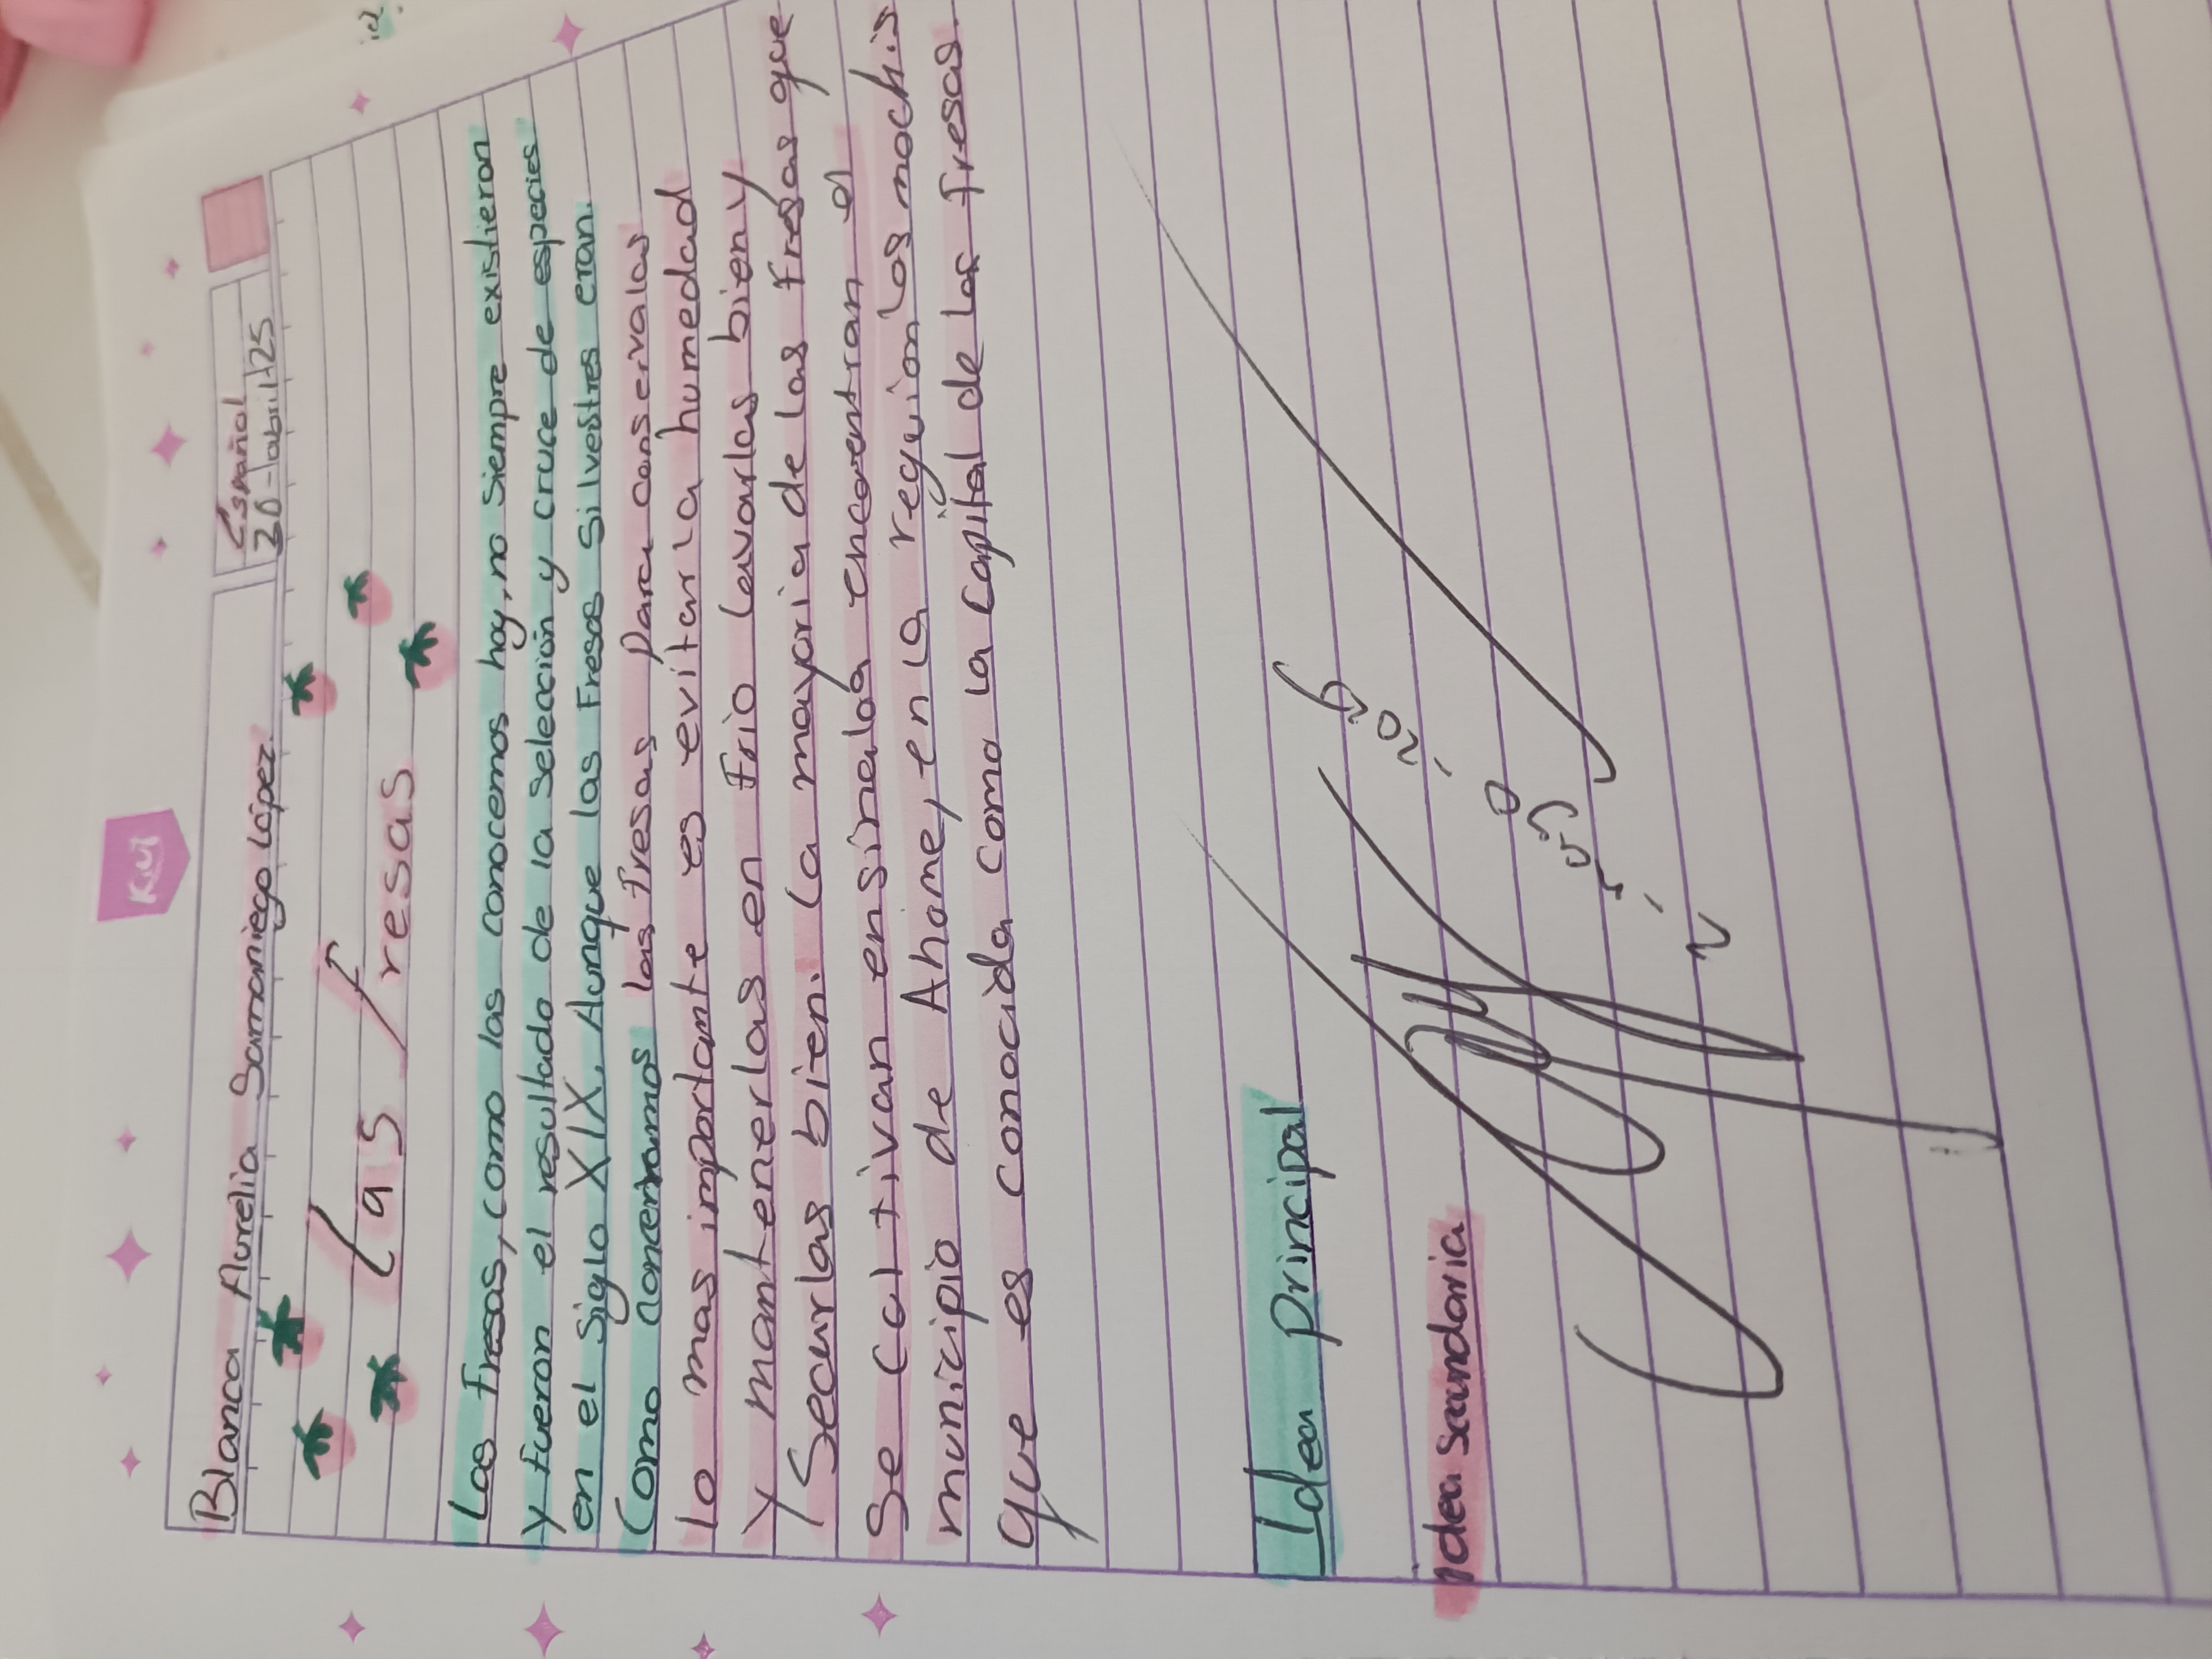 Kiut
Español
Blanca Aurelia Samaniego López.
20-abril-25
Las Fresas
Las Fresas, como las conocemos hoy, no siempre existieron
y fueron el resultado de la selección y cruce de especies
en el siglo XIX, Aunque las Fresas silvestres eran.
Como concentramos las fresas para conservalas
lo mas importante es evitar la humedad
Y mantenerlas en frio lavarlas bien y
Securlas bien. La mayoria de las fresas que
Se cultivan en sinaloa encuentran el
municipio de Ahome, en la reguion los mochis
que es conocida como la capital de las fresas.
Idea principal
Idea secundaria